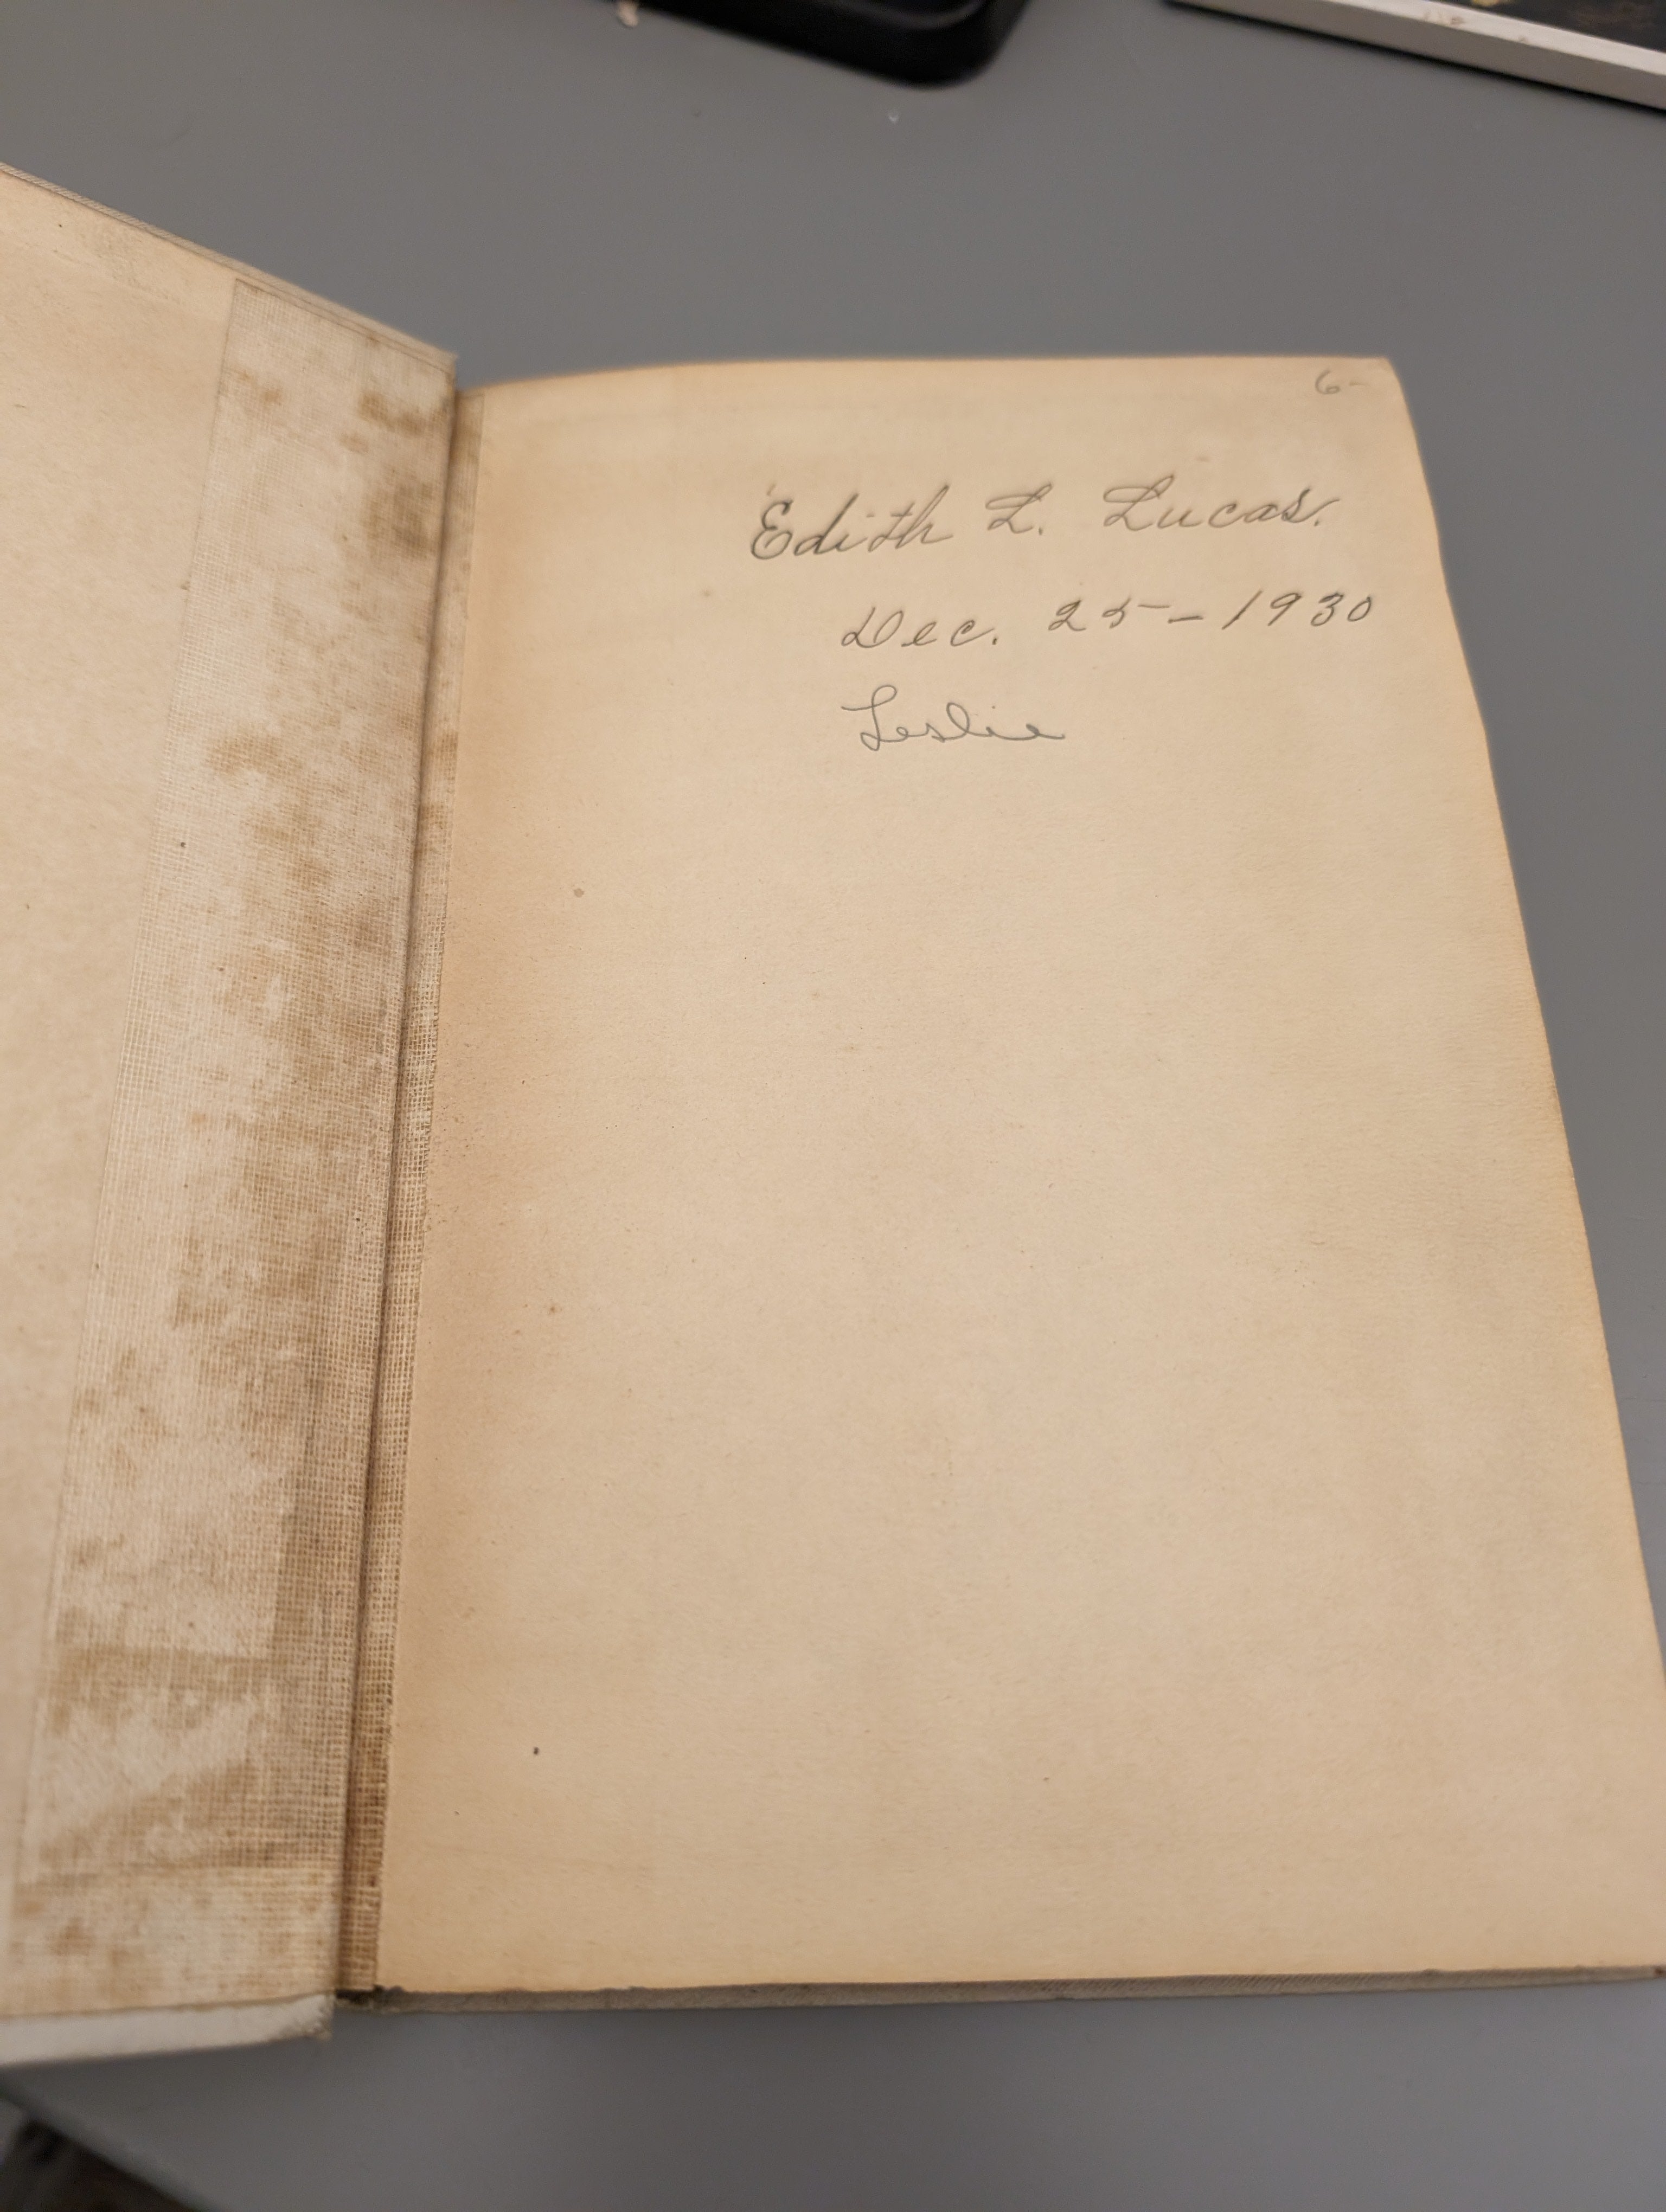 6-
Edith L. Lucas.
Dec. 25-1930
Leslie